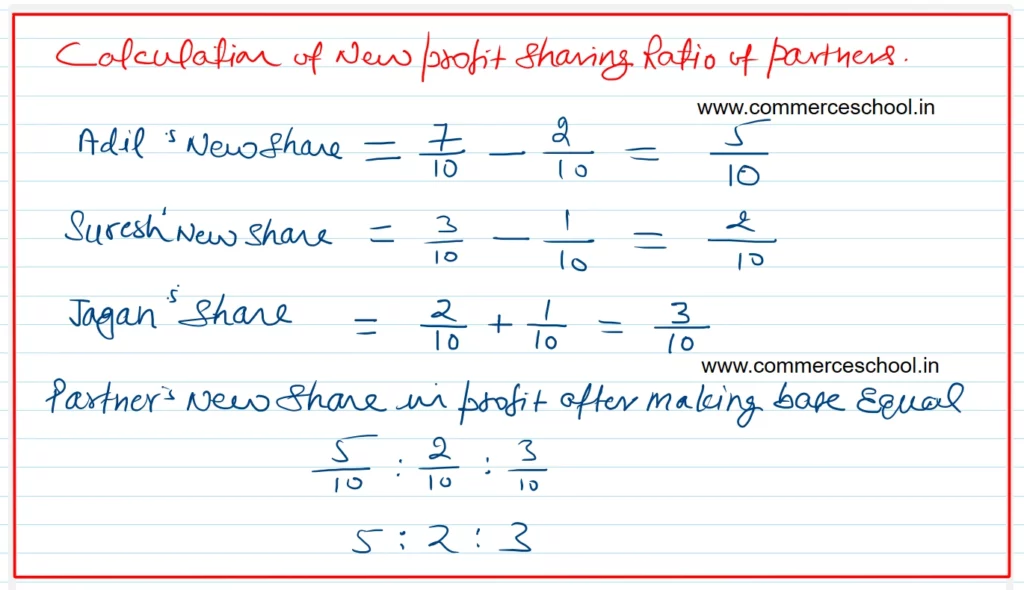 Calculation of New profit sharing Ratio of partners.
www.commerceschool.in
Adil's New Share = 7/10 - 2/10 = 5/10
Suresh' New Share = 3/10 - 1/10 = 2/10
Jagan's Share = 2/10 + 1/10 = 3/10
www.commerceschool.in
Partner's New Share in profit after making base Equal
5/10 : 2/10 : 3/10
5 : 2 : 3